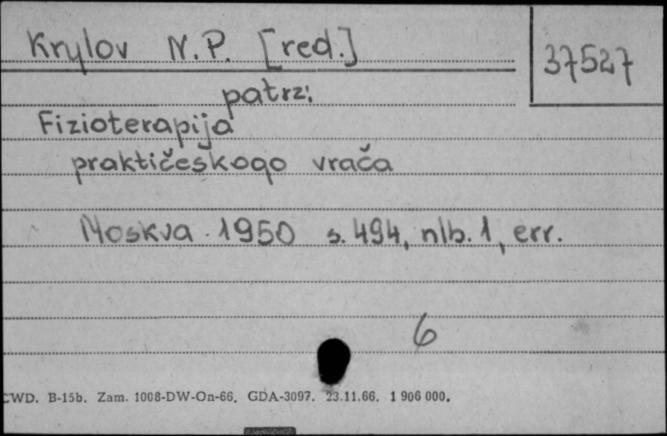 Krylov N.P. [red.]
37527
patrz:
Fizioterapija
praktičeskogo vrača
Moskva 1950 s. 494, nlb. 1, err.
6
CWD. B-15b. Zam. 1008-DW-On-66. GDA-3097. 23.11.66. 1 906 000.